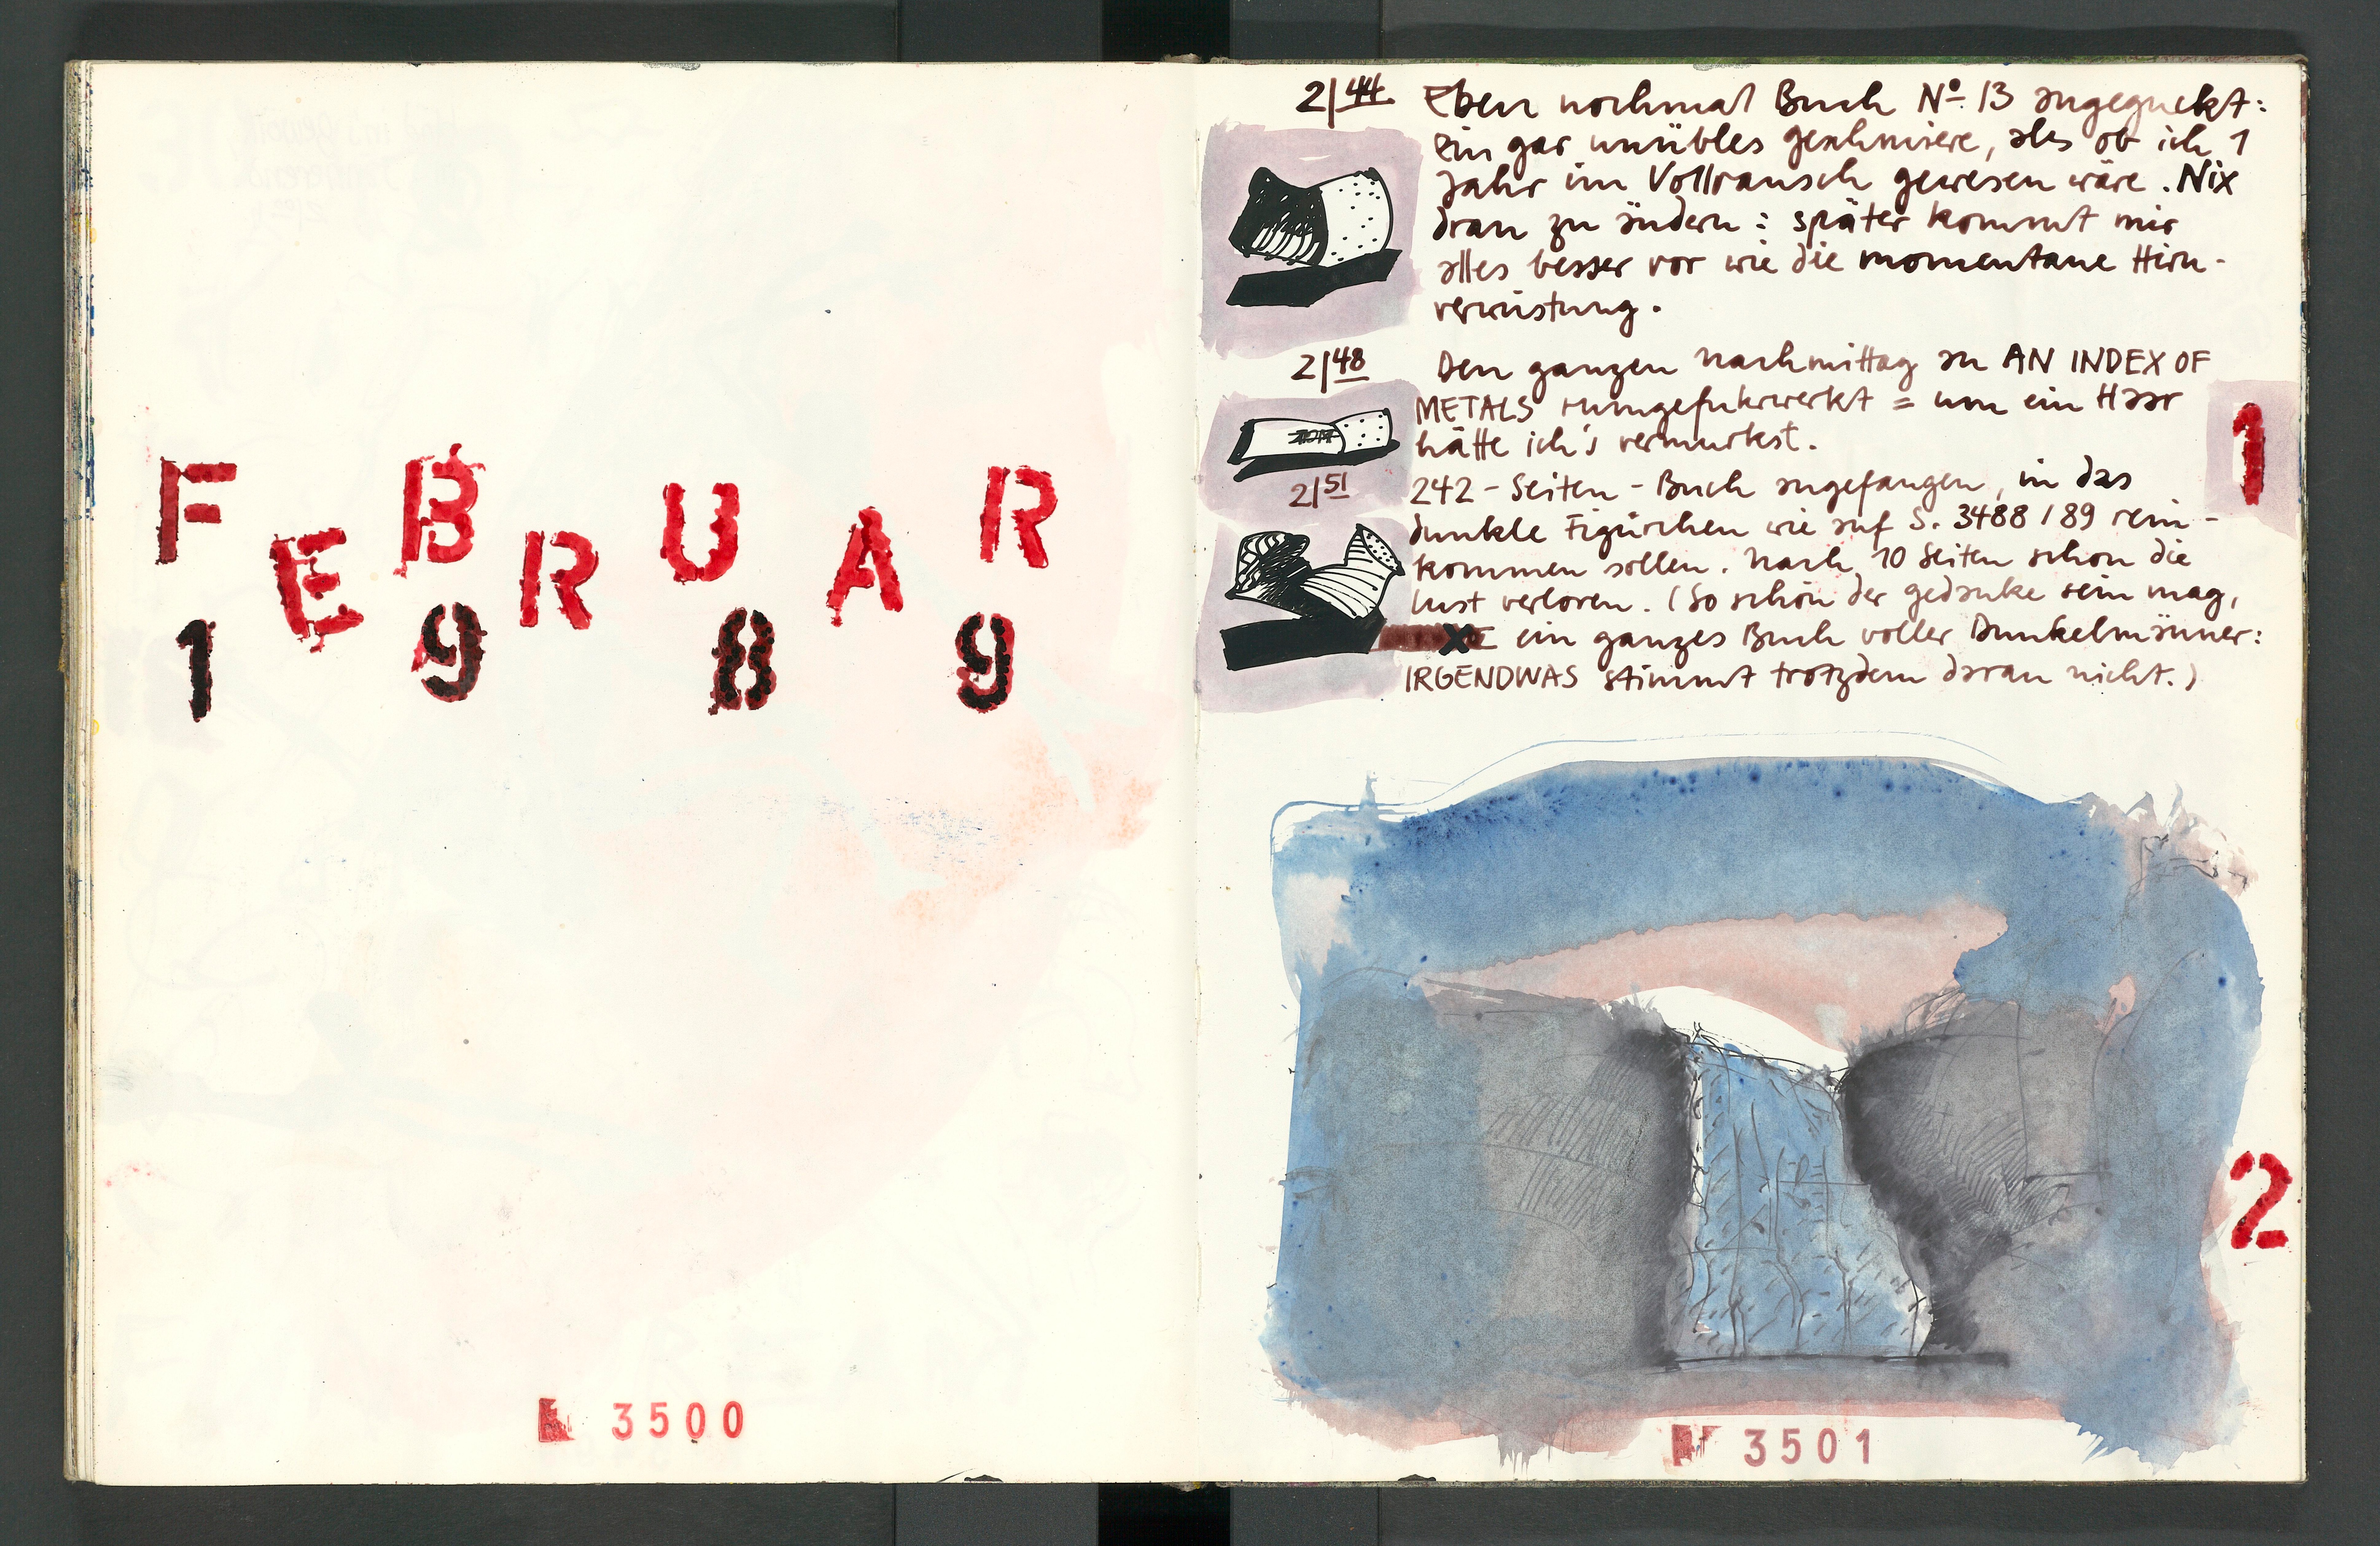 FEBRUAR
1989
3500
2/44 Eben nochmal Buch No. 13 angeguckt:
Ein gar unübles geschmiere, als ob ich 1
Jahr im Vollrausch gewesen wäre. Nix
dran zu ändern: später kommt mir
alles besser vor wie die momentane Hirn-
verwüstung.
2/48 Den ganzen nachmittag an AN INDEX OF
METALS rumgefuhrwerkt = um ein Haar
hätte ich's vermurkst.
2/51 242-Seiten-Buch angefangen, in das
dunkle Figürchen wie auf S. 3488/89 rein-
kommen sollen. Nach 10 Seiten schon die
lust verloren. (So schön der gedanke sein mag,
ein ganzes Buch voller Dunkelmänner:
IRGENDWAS stimmt trotzdem daran nicht.)
1
2
3501